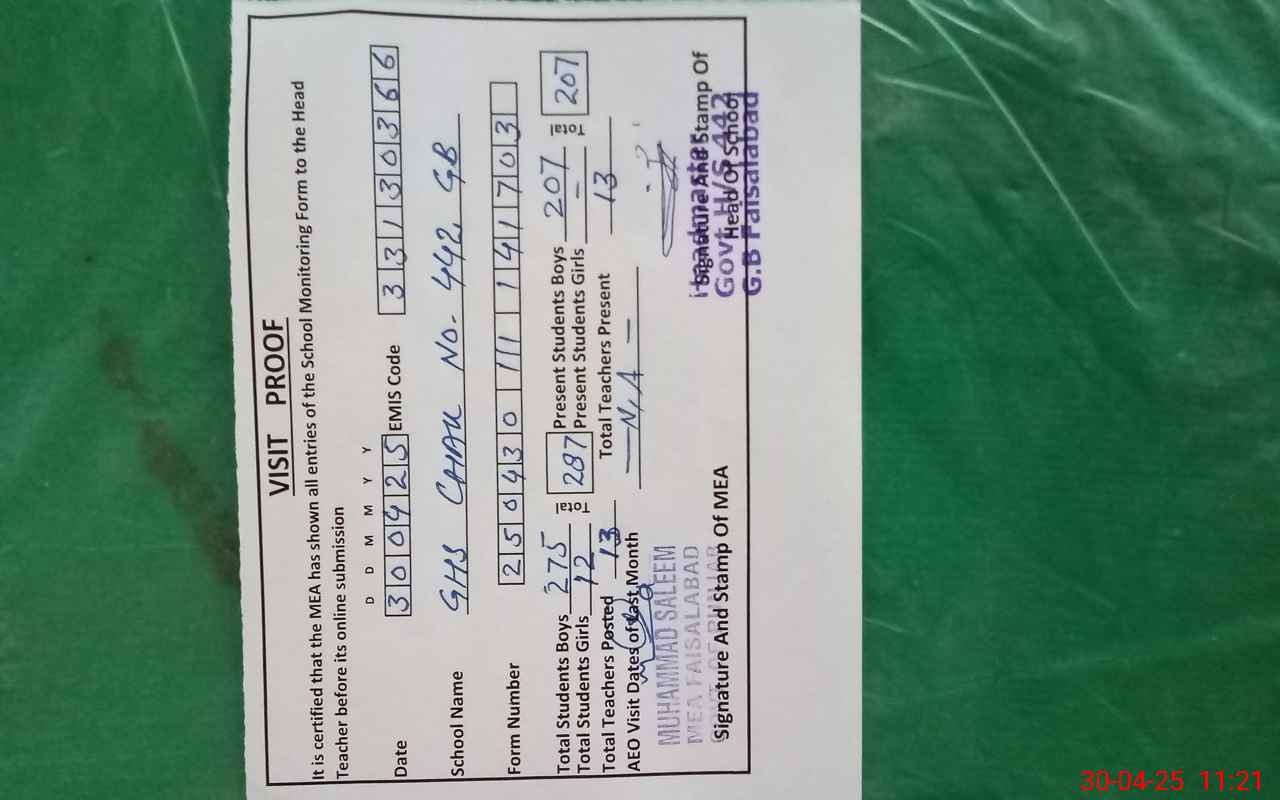 VISIT PROOF
It is certified that the MEA has shown all entries of the School Monitoring Form to the Head
Teacher before its online submission
D D M M Y Y
Date 300425 EMIS Code 33130366
School Name GHS CHAK NO. 442 GB
Form Number
Total Students Boys 275 Total 287 Present Students Boys 207 Total 207
Total Students Girls 12 Present Students Girls -
Total Teachers Posted 13 Total Teachers Present 13
AEO Visit Dates of Last Month — N/A —
MUHAMMAD SALEEM
MEA FAISALABAD
GOVT. OF PUNJAB
Signature And Stamp Of MEA
Headmaster
Govt. H/S 442
G.B Faisalabad
Signature And Stamp Of
Head Of School
30-04-25 11:21